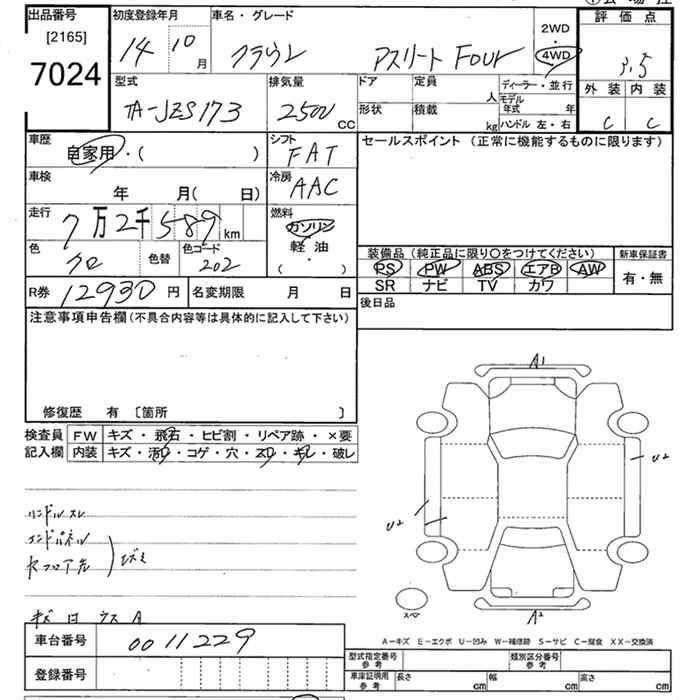 出品番号 初度登録年月 車名・グレード 2WD 評価点
[2165] 14 10月 クラウン アスリート Four 4WD 3.5
7024
型式 排気量 ドア 定員 人 ディーラー・並行 外装 内装
TA-JZS173 2500 CC 形状 積載 kg モデル年式 年 C C
ハンドル 左・右
車歴 自家用・( ) シフト FAT セールスポイント (正常に機能するものに限ります)
車検 年 月( 日) 冷房 AAC
走行 7万2千589km 燃料 ガソリン 軽油 ( ・ )
色 クロ 色替 色コード 202
装備品 (純正品に限り〇をつけてください) 新車保証書
PS PW ABS エアB AW 有・無
SR ナビ TV カワ
R券 12930 円 名変期限 月 日 後日品
注意事項申告欄(不具合内容等は具体的に記入して下さい)
修復歴 有 〔箇所 〕
検査員 FW キズ・飛石・ヒビ割・リペア跡・×要
記入欄 内装 キズ・汚れ・コゲ・穴・スレ・キレ・破レ
A1
U2
U2
ハンドルスレ
キズ
スペア
A2
A-キズ E-エクボ U-凹み W-補修跡 S-サビ C-腐食 XX-交換済
車台番号 0011229
型式指定番号 参考 類別区分番号 参考
登録番号
車庫証明用 参考 長さ cm 幅 cm 高さ cm